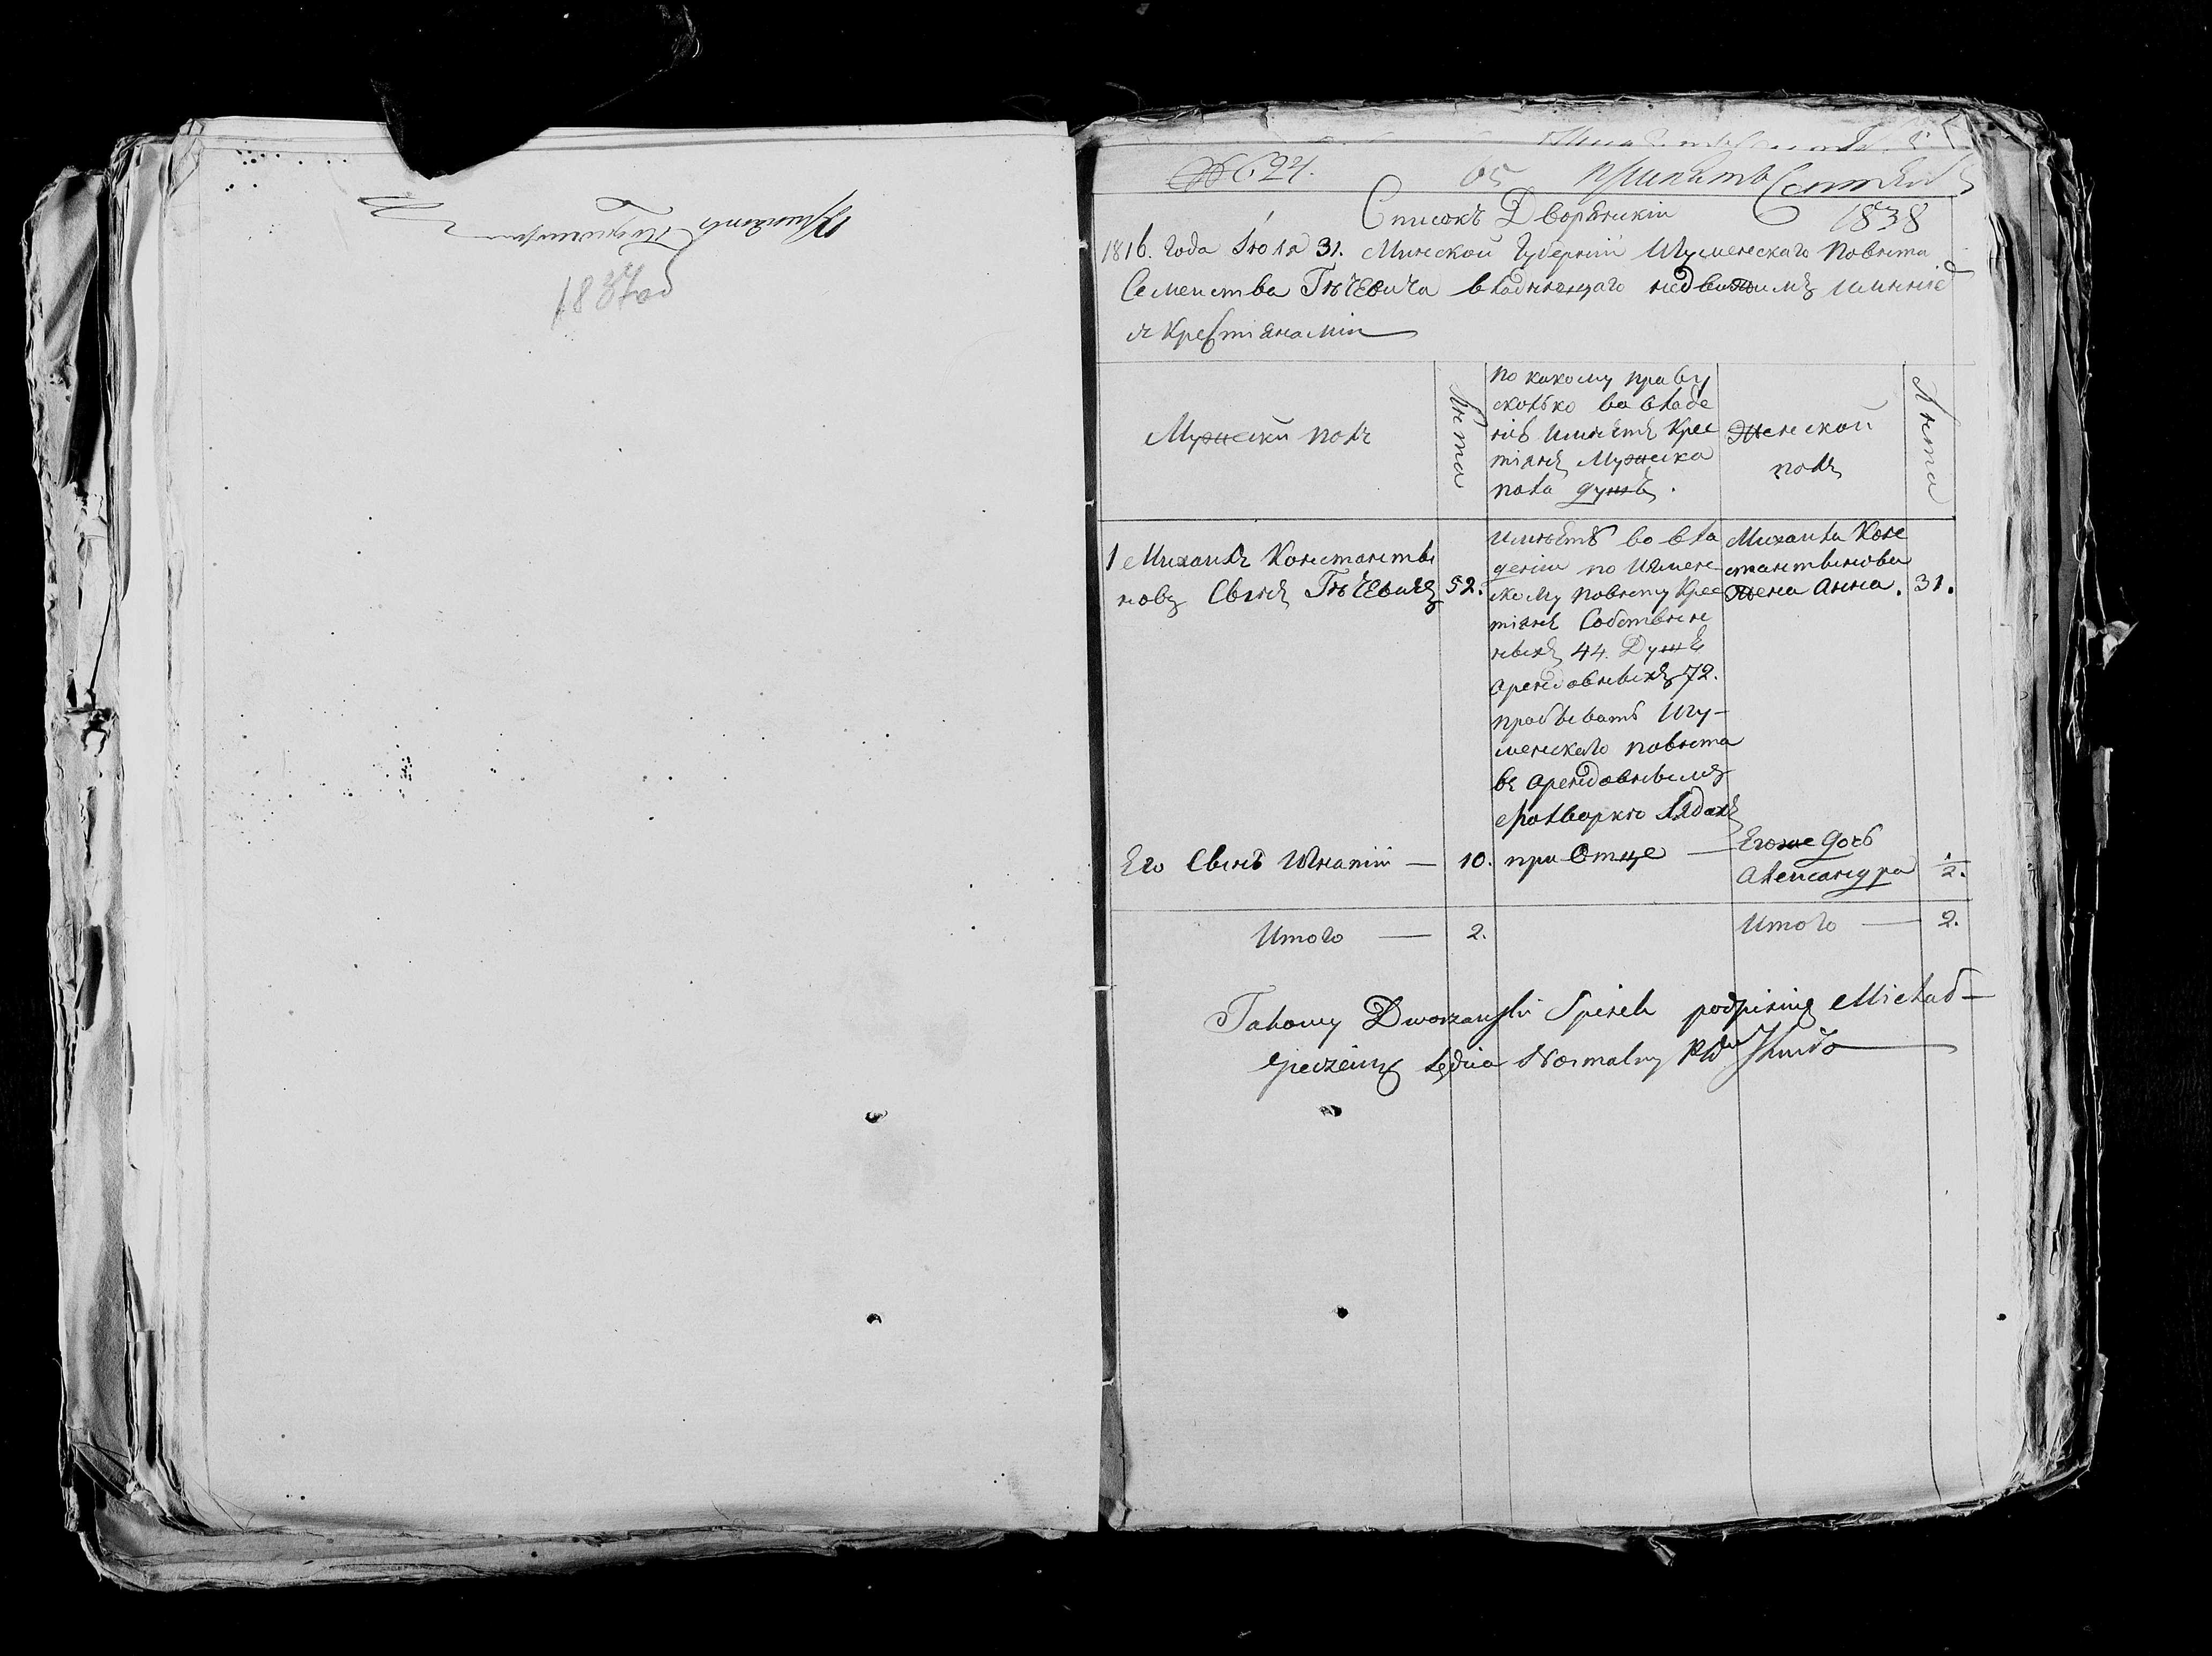 1837 год
№ 624.
65
принять
1838
Списокъ Дворянскіи
1816. года Іюля 31. Минской Губерніи Игуменскаго Повѣта
Семейства Гѣчевича владѣющаго недвижимъ имѣніе
и Крестіянаміи
Мужески полъ
Лѣта
По какому праву
сколько во владе
ніѣ имѣетъ Крес
тіянъ Мужеска
пола душъ.
Женской
полъ
Лѣта
1 Михаилъ Константы
новъ Сынъ Гѣчевичъ
52.
имѣетъ во вла
деніи по Игумен
скому повѣту Крес
тіянъ Собственн
ныхъ 44. Душъ
арендовныхъ 72.
пробываетъ Игу-
менскаго повѣта
въ арендовнымъ
Фолваркю Лядахъ
Михаила Конс
стантынова
Жена Анна.
31.
Его Сынъ Игнатіи —
10.
при Отце —
Егоже дочь
Александра
1/2.
Итого —
2.
Итого —
2.
Takowy Dworzanski Spisek podpisuię Michał
Gieczewicz Sędzia